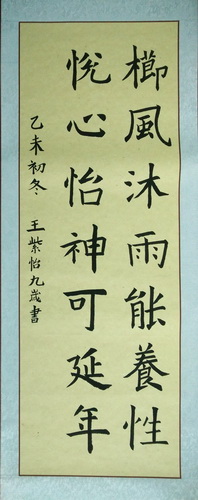 櫛風沐雨能養性
悅心怡神可延年
乙未初冬 王紫怡九歲書